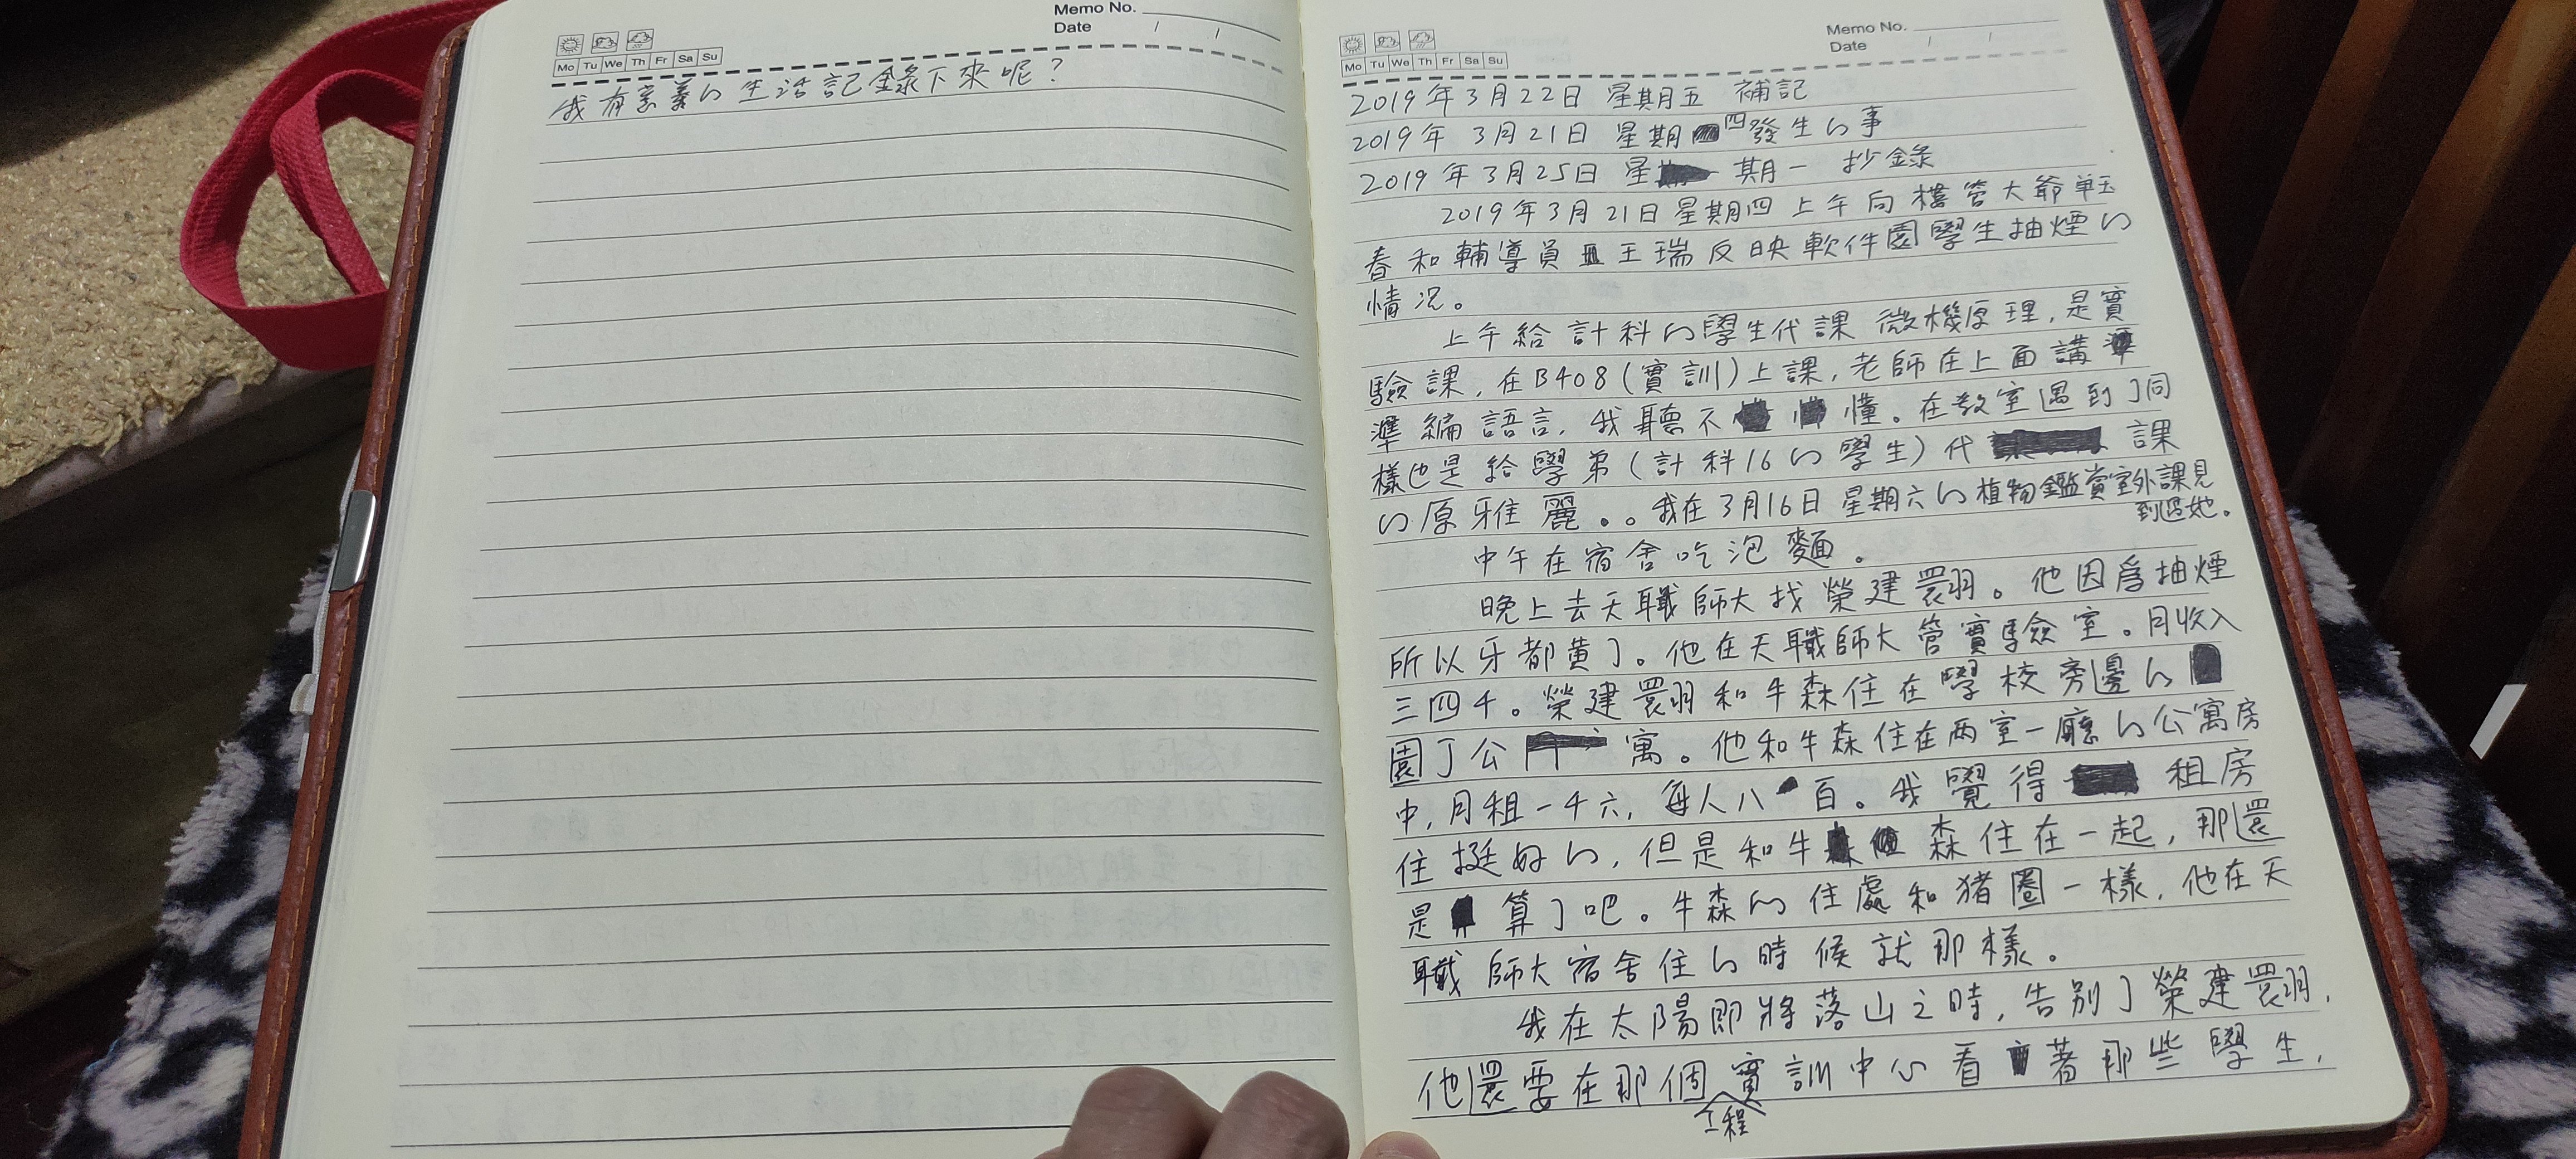 Memo No.
Date / /
Mo Tu We Th Fr Sa Su
我有意義的生活記錄下來呢？
Memo No.
Date / /
Mo Tu We Th Fr Sa Su
2019年3月22日 星期五 補記
2019年 3月21日 星期四發生的事
2019年3月25日 星期一 抄錄
2019年3月21日星期四上午向樓管大爺單玉
春和輔導員王瑞反映軟件園學生抽煙的
情況。
上午給計科的學生代課 微機原理，是實
驗課，在B408（實訓）上課，老師在上面講
準編語言，我聽不懂。在教室遇到了同
樣也是給學弟（計科16的學生）代課
的原雅麗。。我在3月16日星期六的植物鑑賞室外課見
到過她。
中午在宿舍吃泡麵。
晚上去天職師大找榮建翾。他因爲抽煙
所以牙都黄了。他在天職師大管實驗室。月收入
三四千。榮建翾和牛森住在學校旁邊的
園丁公寓。他和牛森住在两室一廳的公寓房
中，月租一千六，每人八百。我覺得租房
住挺好的，但是和牛森住在一起，那還
是算了吧。牛森的住處和猪圈一樣，他在天
職師大宿舍住的時候就那樣。
我在太陽即將落山之時，告别了榮建翾，
他還要在那個工程實訓中心看著那些學生，